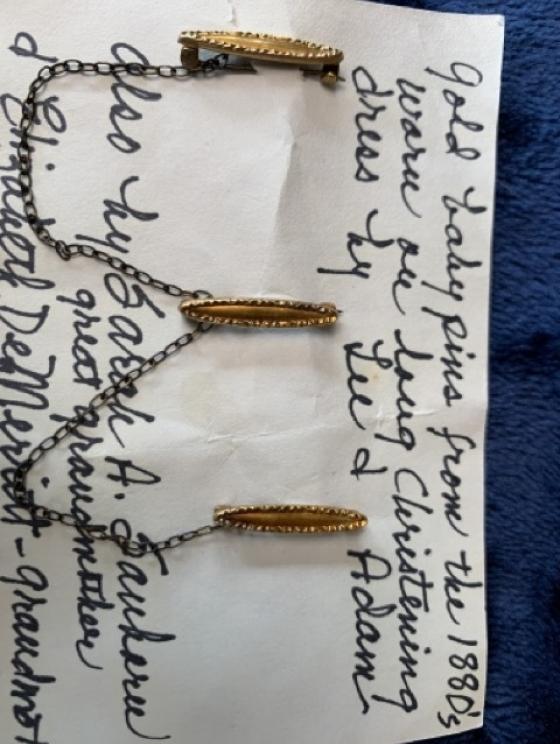 Gold baby pins from the 1880's
worn on long Christening
dress by Lee & Adam
also by Sarah A.
great grandmother
& Elizabeth DeMerritt - grandmot